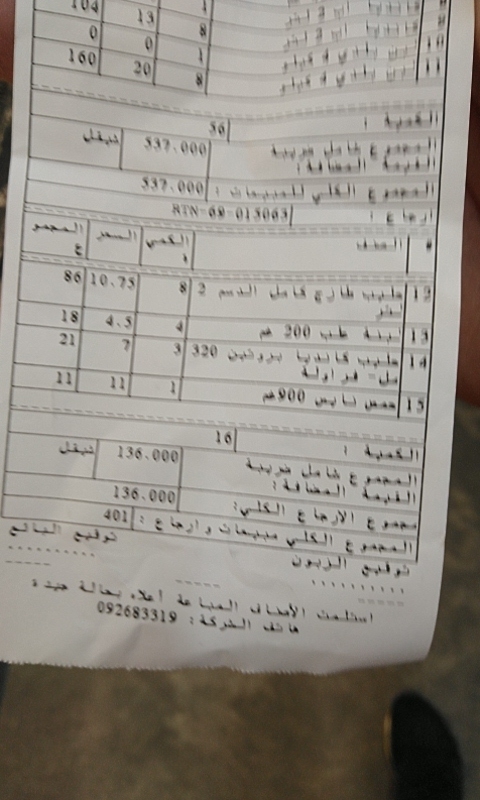 104 13 8
10 لبن بلدي 4 كيلو 1 0 0
11 لبن بلدي 4 كيلو 8 20 160
الكمية : 56
المجموع شامل ضريبة القيمة المضافة: 537.000 شيقل
المجموع الكلي للمبيعات : 537.000
ارجاع : RTN-69-015063
# الصنف الكمية السعر المجموع
12 حليب طازج كامل الدسم 2 لتر 8 10.75 86
13 لبنة علب 200 غم 4 4.5 18
14 حليب كانديا بروتين 320 مل- فراولة 3 7 21
15 حمص نايس 900غم 1 11 11
الكمية : 16
المجموع شامل ضريبة القيمة المضافة: 136.000 شيقل
مجموع الارجاع الكلي: 136.000
المجموع الكلي مبيعات و ارجاع : 401
توقيع الزبون توقيع البائع
استلمت الأصناف المباعة أعلاه بحالة جيدة
هاتف الشركة: 092683319